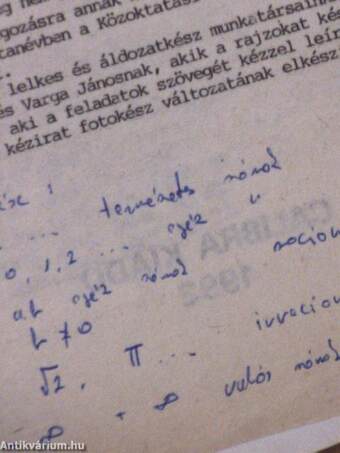 gozásra annak
tanévben a Közoktatási
lelkes és áldozatkész munkatársaim
és Varga Jánosnak, akik a rajzokat kés
aki a feladatok szövegét kézzel leír
kézirat fotokész változatának elkész
... természetes számok
0, 1, 2 ... egész "
a, b egész számok racion
b ≠ 0
√2, π ... irracion
∞ + ∞ valós számok
CALIBRA KIADÓ
1993
Antikvárium.hu